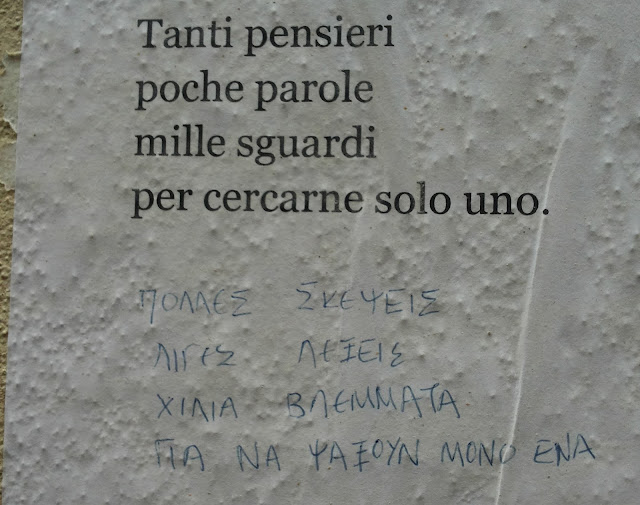 Tanti pensieri
poche parole
mille sguardi
per cercarne solo uno.
ΠΟΛΛΕΣ ΣΚΕΨΕΙΣ
ΛΙΓΕΣ ΛΕΞΕΙΣ
ΧΙΛΙΑ ΒΛΕΜΜΑΤΑ
ΓΙΑ ΝΑ ΨΑΞΟΥΝ ΜΟΝΟ ΕΝΑ